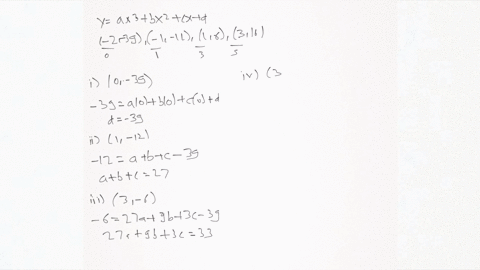 y = ax³+bx²+cx+d
(-2,-39), (-1,-12), (1,-6), (3,16)
0 1 3 5
i) (0,-39)
-39 = a(0)+b(0)+c(0)+d
d = -39
ii) (1,-12)
-12 = a+b+c-39
a+b+c = 27
iii) (3,-6)
-6 = 27a+9b+3c-39
27a+9b+3c = 33
iv) (3